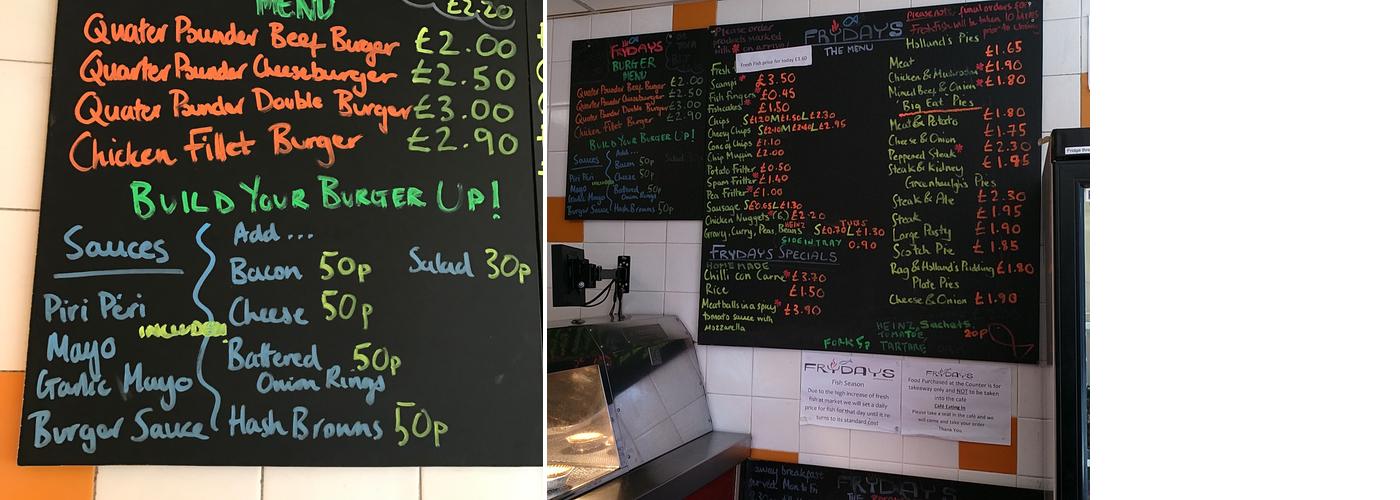 MENU
£2.20
Quater Pounder Beef Burger £2.00
Quarter Pounder Cheeseburger £2.50
Quater Pounder Double Burger £3.00
Chicken Fillet Burger £2.90
BUILD YOUR BURGER UP!
Sauces
Piri Péri
INCLUDED
Mayo
Garlic Mayo
Burger Sauce
Add ...
Bacon 50p
Salad 30p
Cheese 50p
Battered 50p
Onion Rings
Hash Browns 50p
FRYDAYS
BURGER
MENU
Quater Pounder Beef Burger £2.00
Quarter Pounder Cheeseburger £2.50
Quater Pounder Double Burger £3.00
Chicken Fillet Burger £2.90
BUILD YOUR BURGER UP!
Sauces
Piri Péri
INCLUDED
Mayo
Garlic Mayo
Burger Sauce
Add ...
Bacon 50p
Cheese 50p
Battered 50p
Onion Rings
Hash Browns 50p
Please order
products marked
with * on arrival
FRYDAYS
THE MENU
Fresh Fish price for today £3.60
Fresh
Scampi * £3.50
Fish Fingers * £0.45
Fishcakes * £1.50
Chips S£1.20 M£1.50 L£2.30
Cheesy Chips S£2.10 M£2.40 L£2.95
Cone of Chips £1.10
Chip Muffin £2.00
Potato Fritter £0.50
Spam Fritter * £1.40
Pea Fritter * £1.00
Sausage S£0.65 L£1.30
Chicken Nuggets * (6) £2.20
Gravy, Curry, Peas, HEINZ Beans TUBS S£0.70 L£1.30
SIDE IN TRAY 0.90
FRYDAYS SPECIALS
HOMEMADE
Chilli con Carne * £3.70
Rice £1.50
Meatballs in a spicy * £3.90
tomato sauce with
mozzarella
Please note, final orders for
fresh fish will be taken 10 mins
prior to closing
Holland's Pies
Meat £1.65
Chicken & Mushroom * £1.90
Minced Beef & Onion * £1.80
'Big Eat' Pies
Meat & Potato £1.80
Cheese & Onion £1.75
Peppered Steak * £2.30
Steak & Kidney £1.95
Greenhalgh's Pies
Steak & Ale £2.30
Steak £1.95
Large Pasty £1.90
Scotch Pie £1.85
Rag & Holland's Pudding £1.80
Plate Pies
Cheese & Onion £1.90
HEINZ Sachets
TOMATOE 20p
TARTARE
FORK 5p
FRYDAYS
Fish Season
Due to the high increase of fresh
fish at market we will set a daily
price for fish for that day until it re
turns to its standard cost
FRYDAYS
Food Purchased at the Counter is for
takeaway only and NOT to be taken
into the café
Café Eating In
Please take a seat in the café and we
will come and take your order
Thank You
away breakfast
served Mon to Fri
FRYDAYS